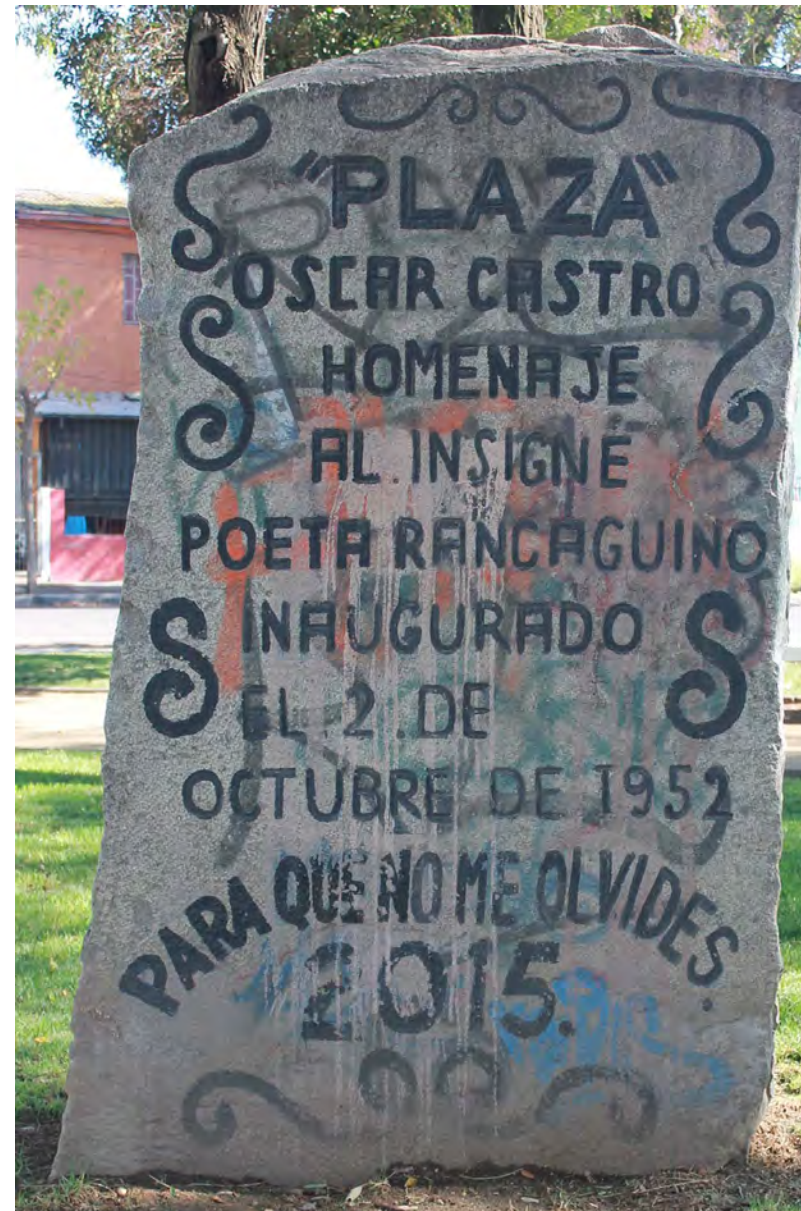 "PLAZA"
OSCAR CASTRO
HOMENAJE
AL.INSIGNE
POETA RANCAGUINO
INAUGURADO
EL.2.DE
OCTUBRE DE 1952
PARA QUE NO ME OLVIDES.
2015.